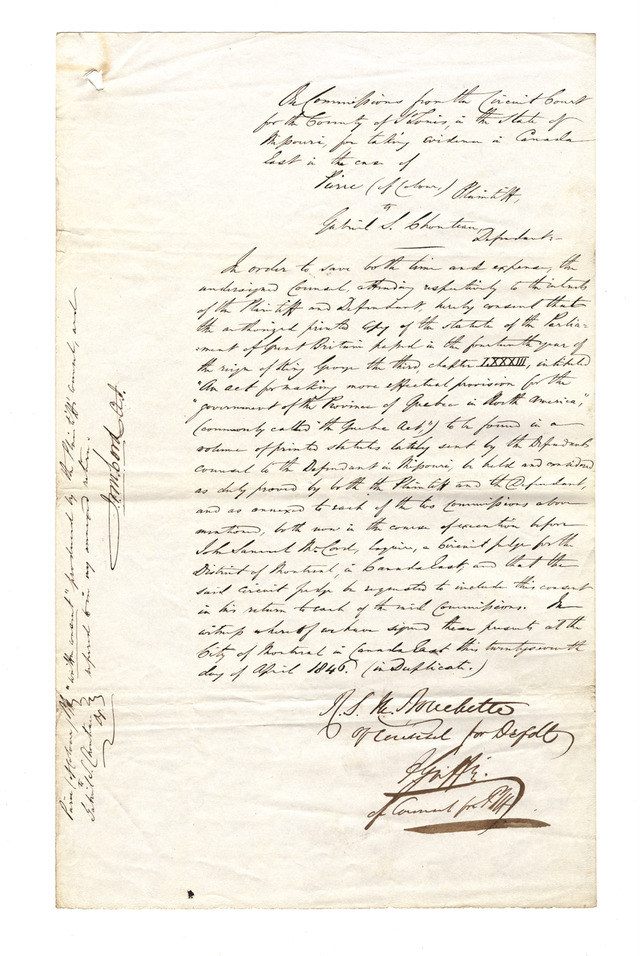 On Commissions from the Circuit Court
for the County of St Louis, in the State of
Missouri, for taking evidence in Canada
East in the case of
Pierre (of Colour,) Plaintiff,
&
Gabriel S. Chouteau, Defendant:-
In order to save both time and expense, the
undersigned Counsel, attending respectively to the interests
of the Plaintiff and Defendant, hereby consent that
the authorized printed copy of the statute of the Parlia-
ment of Great Britain passed in the fourteenth year of
the reign of King George the third, chapter LXXXIII, intituled
"An act for making more effectual provision for the
"government of the Province of Quebec in North America",
(commonly called "the Quebec Act,") to be found in a
volume of printed statutes lately sent by the Defendants
counsel to the Defendant in Missouri, be held and considered
as duly proved by both the Plaintiff and the Defendant,
and as annexed to each of the two Commissions above
mentioned, both now in the course of execution before
John Samuel McCord, Esquire, a Circuit judge for the
District of Montreal, in Canada East, and that the
said circuit judge be requested to include this consent
in his return to each of the said Commissions. In
witness whereof we have signed these presents at the
City of Montreal in Canada East this twenty seventh
day of April 1846. (in Duplicate.)
R. S. M. Bouchette
of Counsel for Defdt
of Counsel for Pltff.
Pierre (of colour) Plff
&
Gabriel S. Chouteau Dft
"written consent" produced by the Plaintiff's Counsel, and
referred to in my annexed return.